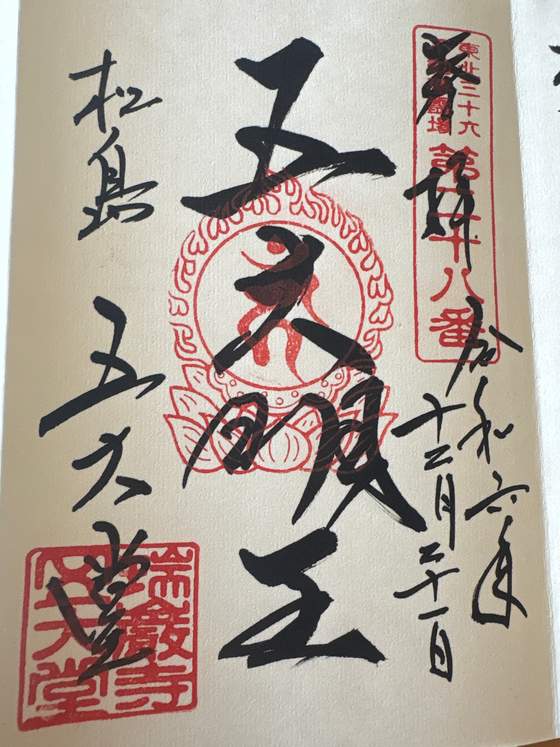 東北三十六
霊場
第二十八番
奉拝
令和六年
十二月二十一日
五大明王
松島
五大堂
瑞巌寺
五大堂